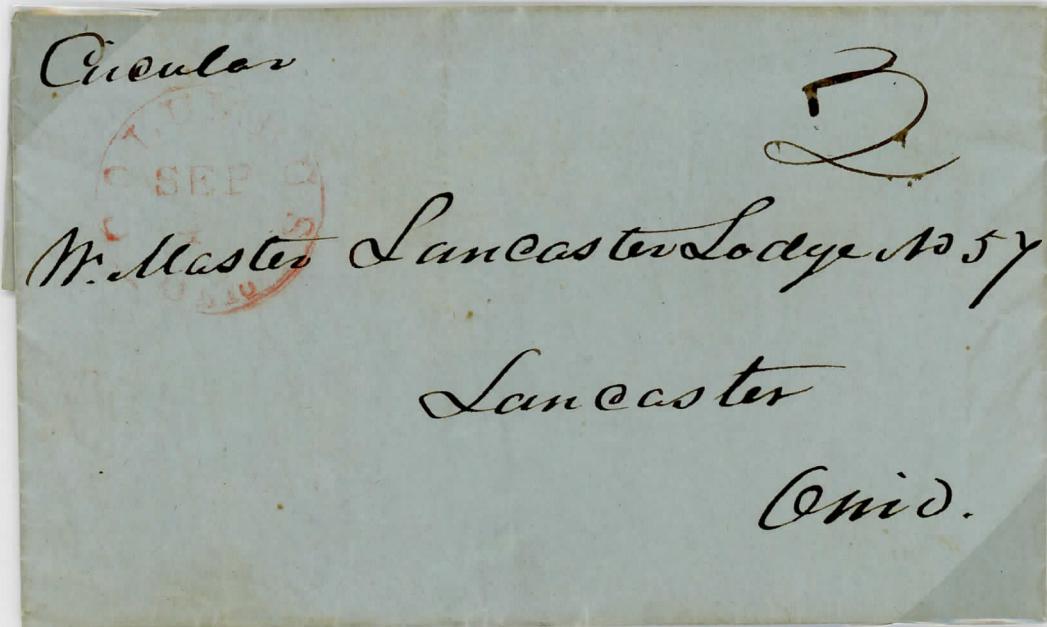 Circular
3
COLUMBUS
SEP
OHIO
W. Master Lancaster Lodge No 57
Lancaster
Ohio.